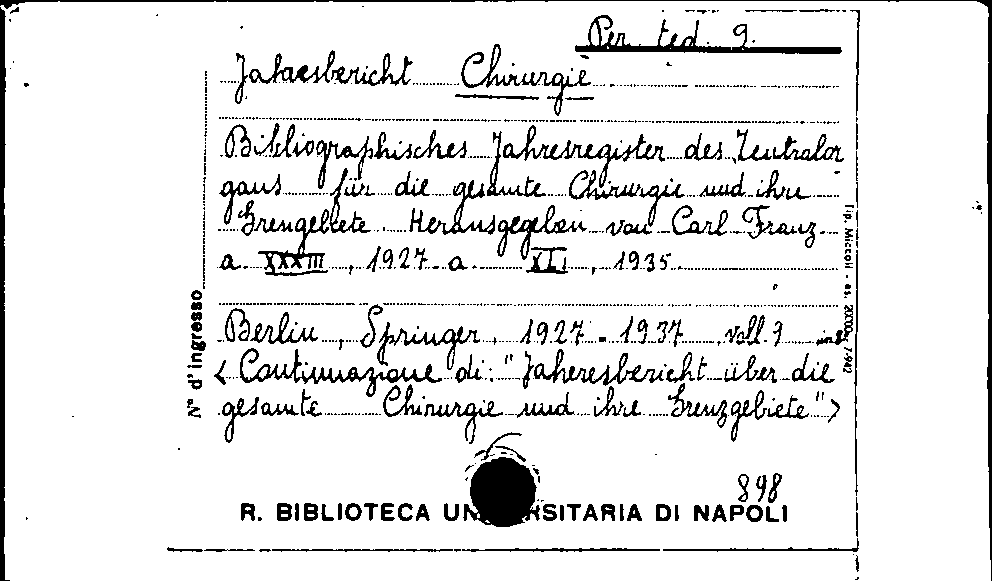 Per. ted. 9.
Jahaesbericht Chirurgie
Bibliographisches Jahresregister des Zentralor
gans für die gesamte Chirurgie und ihre
Grengebiete. Herausgegeben von Carl Franz.
a. XXXIII, 1927- a. XLI, 1935.
Berlin, Springer, 1927-1937 voll. 9 in 8°
< Continuazione di: "Jaheresbericht über die
gesamte Chirurgie und ihre Grenzgebiete">
898
R. BIBLIOTECA UN RSITARIA DI NAPOLI
N° d'ingresso
Tip. Miccoli - es. 20000, 7-942